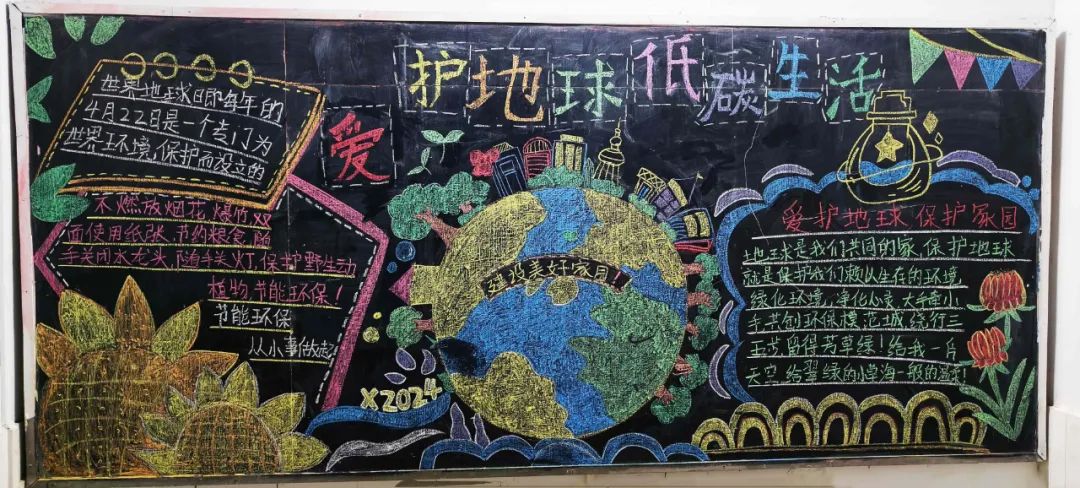 爱护地球低碳生活
世界地球日即每年的
4月22日是一个专门为
世界环境保护而设立的
不燃放烟花爆竹,双
面使用纸张,节约粮食,随
手关闭水龙头,随手关灯,保护野生动
植物,节能环保!
节能环保
从小事做起!
建设美好家园!
X2024
爱护地球 保护家园
地球是我们共同的家,保护地球
就是保护我们赖以生存的环境.
绿化环境,净化心灵,大手牵小
手共创环保模范城,绕行三
五步,留得芳草绿!给我一片
天空,给 绿的